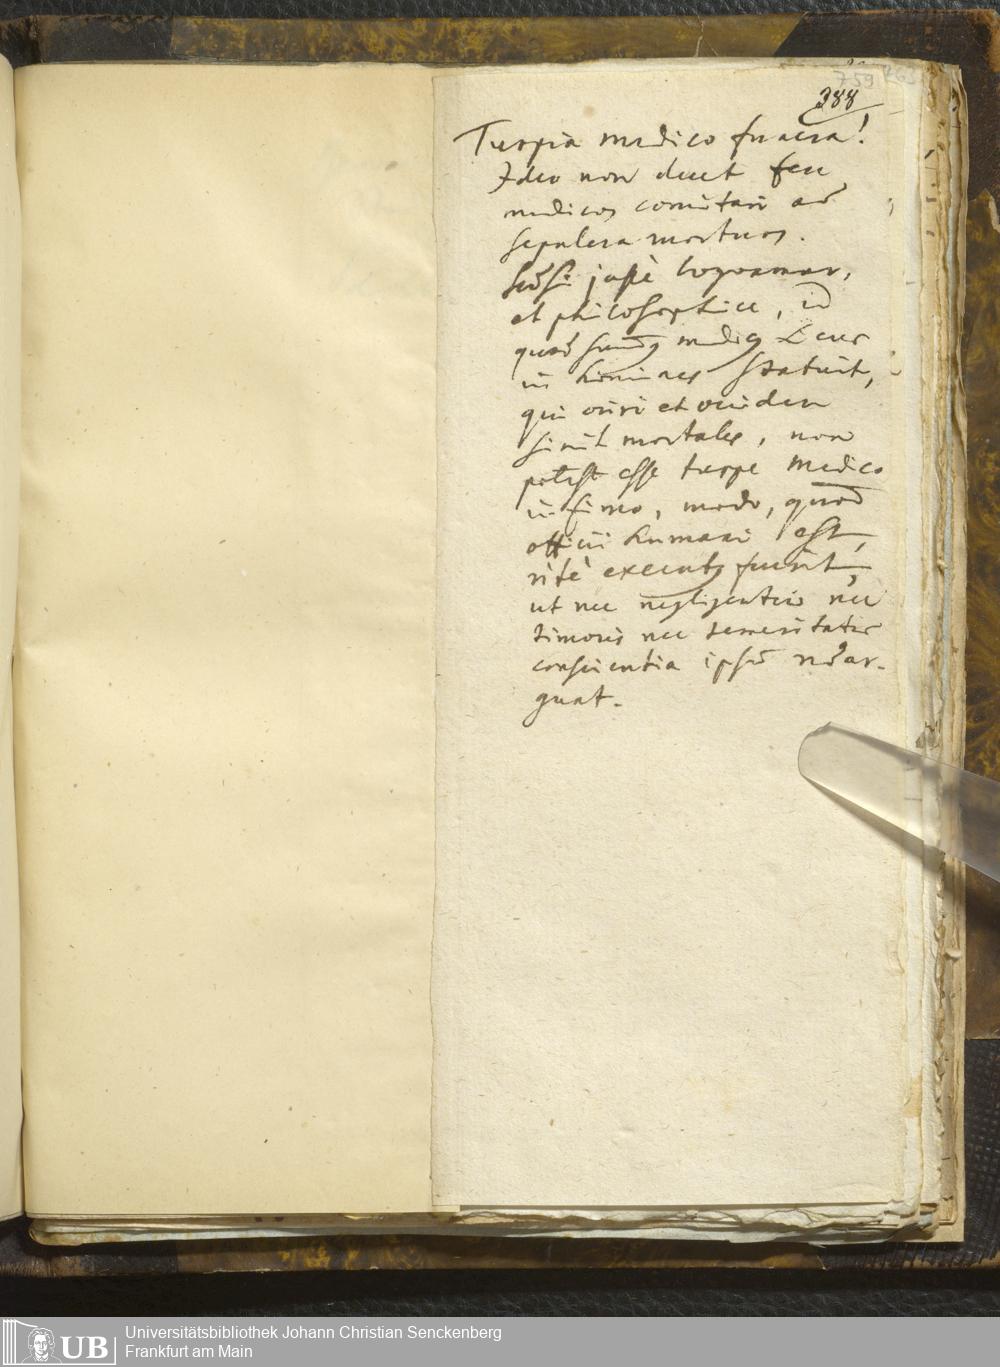 759 763
388
Turpia medico funera!
Ideo non decet seu
medicos comitari ad
sepulcra mortuos.
sapè loqvamur,
et philosophicè, id
quod sum͞q medicq Deus
in homines statuit,
qui oriri et occidere
sinit mortales, non
potest esse turpe medico
infimo, modo, quod
officii humani est,
ritè executq fuerit,
ut nec negligentiae nec
timoris nec temeritatis
conscientia ipsū nō ar-
guat.
UB
Universitätsbibliothek Johann Christian Senckenberg
Frankfurt am Main